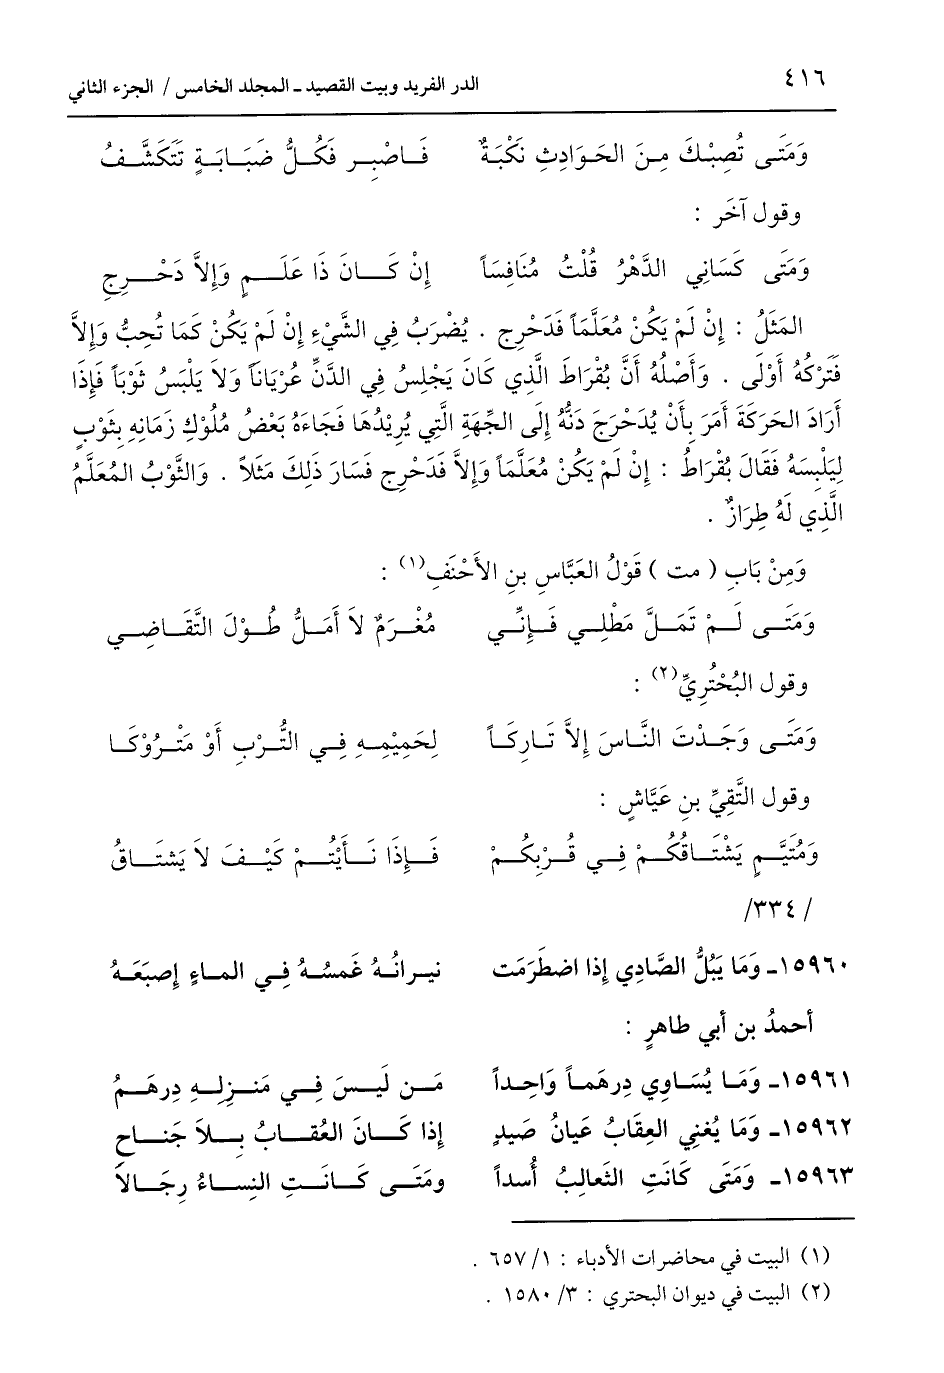 ٤١٦ الدر الفريد وبيت القصيد ـ المجلد الخامس / الجزء الثاني
وَمَتَى تُصِبْكَ مِنَ الحَوَادِثِ نَكْبَةٌ فَاصْبِر فَكُلُّ ضَبَابَةٍ تَتَكَشَّفُ
وقول آخَر :
وَمَتَى كَسَانِي الدَّهْرُ قُلْتُ مُنَافِسَاً إِنْ كَانَ ذَا عَلَمٍ وَإِلاَّ دَحْرِجِ
المَثَلُ : إِنْ لَمْ يَكُنْ مُعَلَّمَاً فَدَحْرِج . يُضْرَبُ فِي الشَّيْءِ إِنْ لَمْ يَكُنْ كَمَا تُحِبُّ وَإِلاَّ
فَتَرْكُهُ أَوْلَى . وَأَصْلُهُ أَنَّ بُقْرَاطَ الَّذِي كَانَ يَجْلِسُ فِي الدَّنِّ عُرْيَاناً وَلاَ يَلْبَسُ ثَوْبَاً فَإِذَا
أَرَادَ الحَرَكَةَ أَمَرَ بِأَنْ يُدَحْرَجَ دَنُّهُ إِلَى الجِّهَةِ الَّتِي يُرِيْدُهَا فَجَاءَهُ بَعْضُ مُلُوْكِ زَمَانِهِ بِثَوْبٍ
لِيَلْبِسَهُ فَقَالَ بُقْرَاطُ : إِنْ لَمْ يَكُنْ مُعَلَّمَاً وَإِلاَّ فَدَحْرِج فَسَارَ ذَلِكَ مَثَلاً . وَالثَّوْبُ المُعَلَّمُ
الَّذِي لَهُ طِرَازٌ .
وَمِنْ بَابِ ( مت ) قَوْلُ العَبَّاسِ بنِ الأَحْنَفِ(١) :
وَمَتَى لَمْ تَمَلَّ مَطْلِي فَإِنِّي مُغْرَمٌ لاَ أَمَلُّ طُوْلَ التَّقَاضِي
وقول البُحْتُرِيِّ(٢) :
وَمَتَى وَجَدْتَ النَّاسَ إِلاَّ تَارِكَاً لِحَمِيْمِهِ فِي التُّرْبِ أَوْ مَتْرُوْكَا
وقول التَّقِيِّ بنِ عَيَّاشٍ :
وَمُتَيَّمٍ يَشْتَاقُكُمْ فِي قُرْبِكُمْ فَإِذَا نَأَيْتُمْ كَيْفَ لاَ يَشتَاقُ
/ ٣٣٤/
١٥٩٦٠ـ وَمَا يَبُلُّ الصَّادِي إِذا اضطَرَمَت نيرانُهُ غَمسُهُ فِي الماءِ إِصبَعَهُ
أحمدُ بن أبي طاهرٍ :
١٥٩٦١ـ وَمَا يُسَاوِي دِرهَماً وَاحِداً مَن لَيسَ فِي مَنزِلِهِ دِرهَمُ
١٥٩٦٢ـ وَمَا يُغنِي العِقَابُ عَيانُ صَيدٍ إِذا كَانَ العُقَابُ بِلاَ جَناحِ
١٥٩٦٣ـ وَمَتَى كَانَتِ الثَعالِبُ أُسداً ومَتَى كَانَتِ النِساءُ رِجَالاَ
(١) البيت في محاضرات الأدباء : ١/ ٦٥٧ .
(٢) البيت في ديوان البحتري : ٣/ ١٥٨٠ .